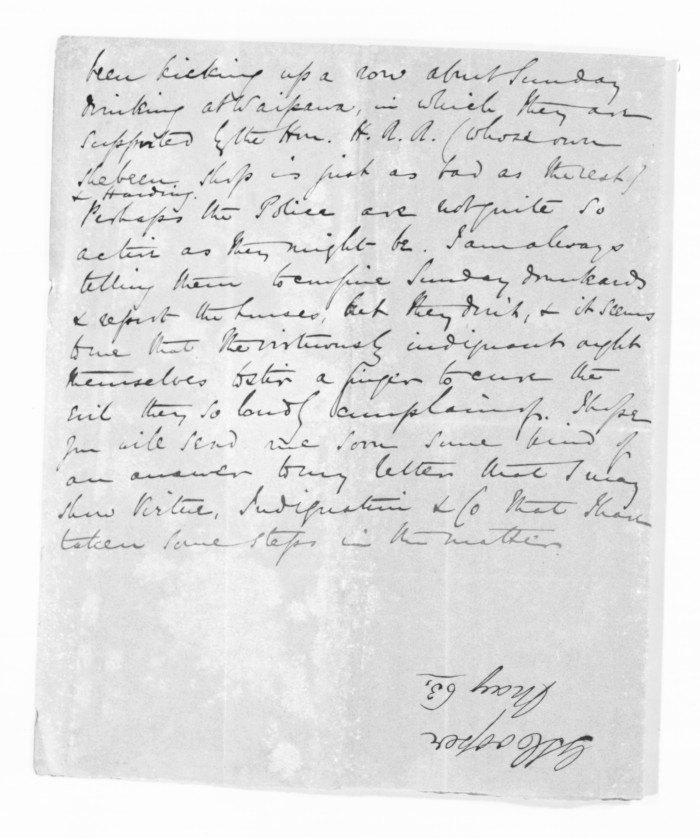 been kicking up a row about Sunday
drinking at Waipawa, in which they are
supported by the Hon. H. R. R. (whose own
shebeen shop is just as bad as the rest)
& Harding.
Perhaps the Police are not quite so
active as they might be. I am always
telling them to confine Sunday drunkards
& report the houses, but they don't, & it seems
to me that the virtuously indignant ought
themselves to stir a finger to cure the
evil they so loudly complain of. I hope
you will send me soon some kind of
an answer to my letter that I may
show Virtue, Indignation & Co that I have
taken some steps in the matter.
G S Cooper
May 63.